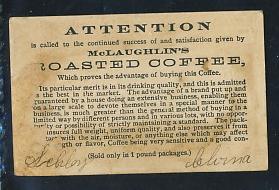 ATTENTION
is called to the continued success of and satisfaction given by
McLAUGHLIN'S
ROASTED COFFEE,
Which proves the advantage of buying this Coffee.
Its particular merit is in its drinking quality, and this is admitted
s the best in the market. The advantage of a brand put up and
guaranteed by a house doing an extensive business, enabling them
n a large scale to devote themselves in a special manner to the
business, is much greater than the general method of buying in a
limited way by different persons and in various lots, with no oppor-
unity or possibility of strictly maintaining a standard. The pack-
insures full weight, uniform quality, and also preserves it from
with the air, moisture, or anything else which may affect
ngth or flavor, Coffee being very sensitive and a good con-
(Sold only in 1 pound packages.)